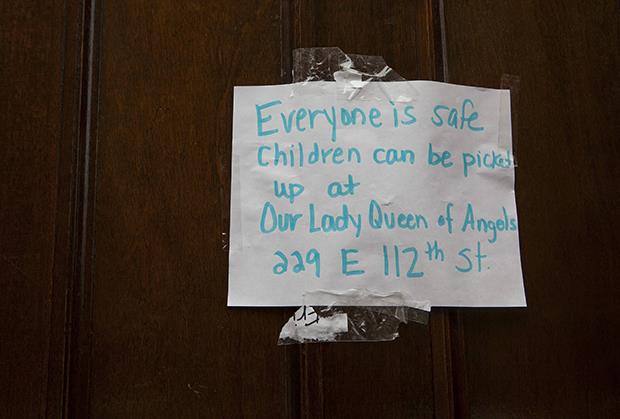 Everyone is safe
Children can be picked
up at
Our Lady Queen of Angels
229 E 112th St.